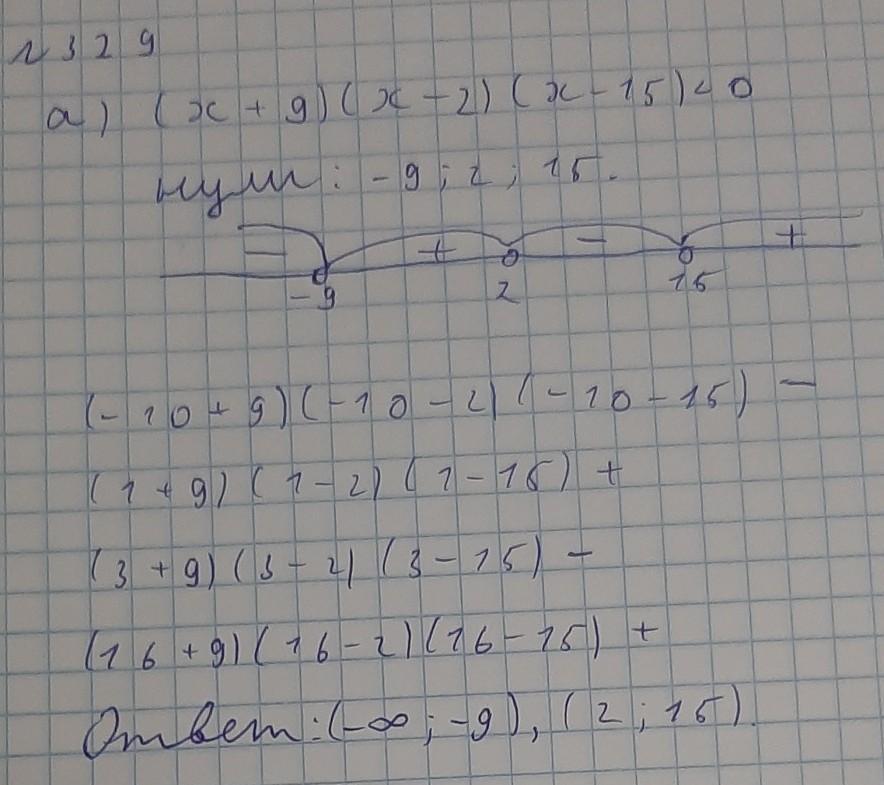 N 329
а) (x + 9)(x - 2)(x - 15) < 0
нули: -9; 2; 15.
- + - +
-9 2 15
(-10 + 9)(-10 - 2)(-10 - 15) -
(1 + 9)(1 - 2)(1 - 15) +
(3 + 9)(3 - 2)(3 - 15) -
(16 + 9)(16 - 2)(16 - 15) +
Ответ: (-∞; -9), (2; 15).